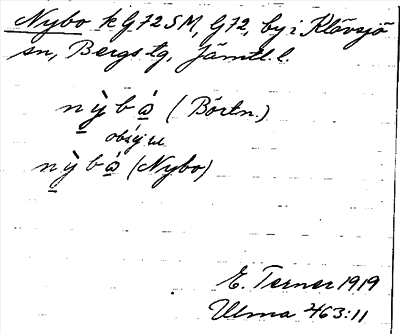 Nybo k G72 SM, G72, by i Klövsjö
sn, Bergs tg, Jämtl. l.
nỳbå̀ (Börtn.)
nỳbå̀ (Nybo)
E. Terner 1919
Ulma 463:11